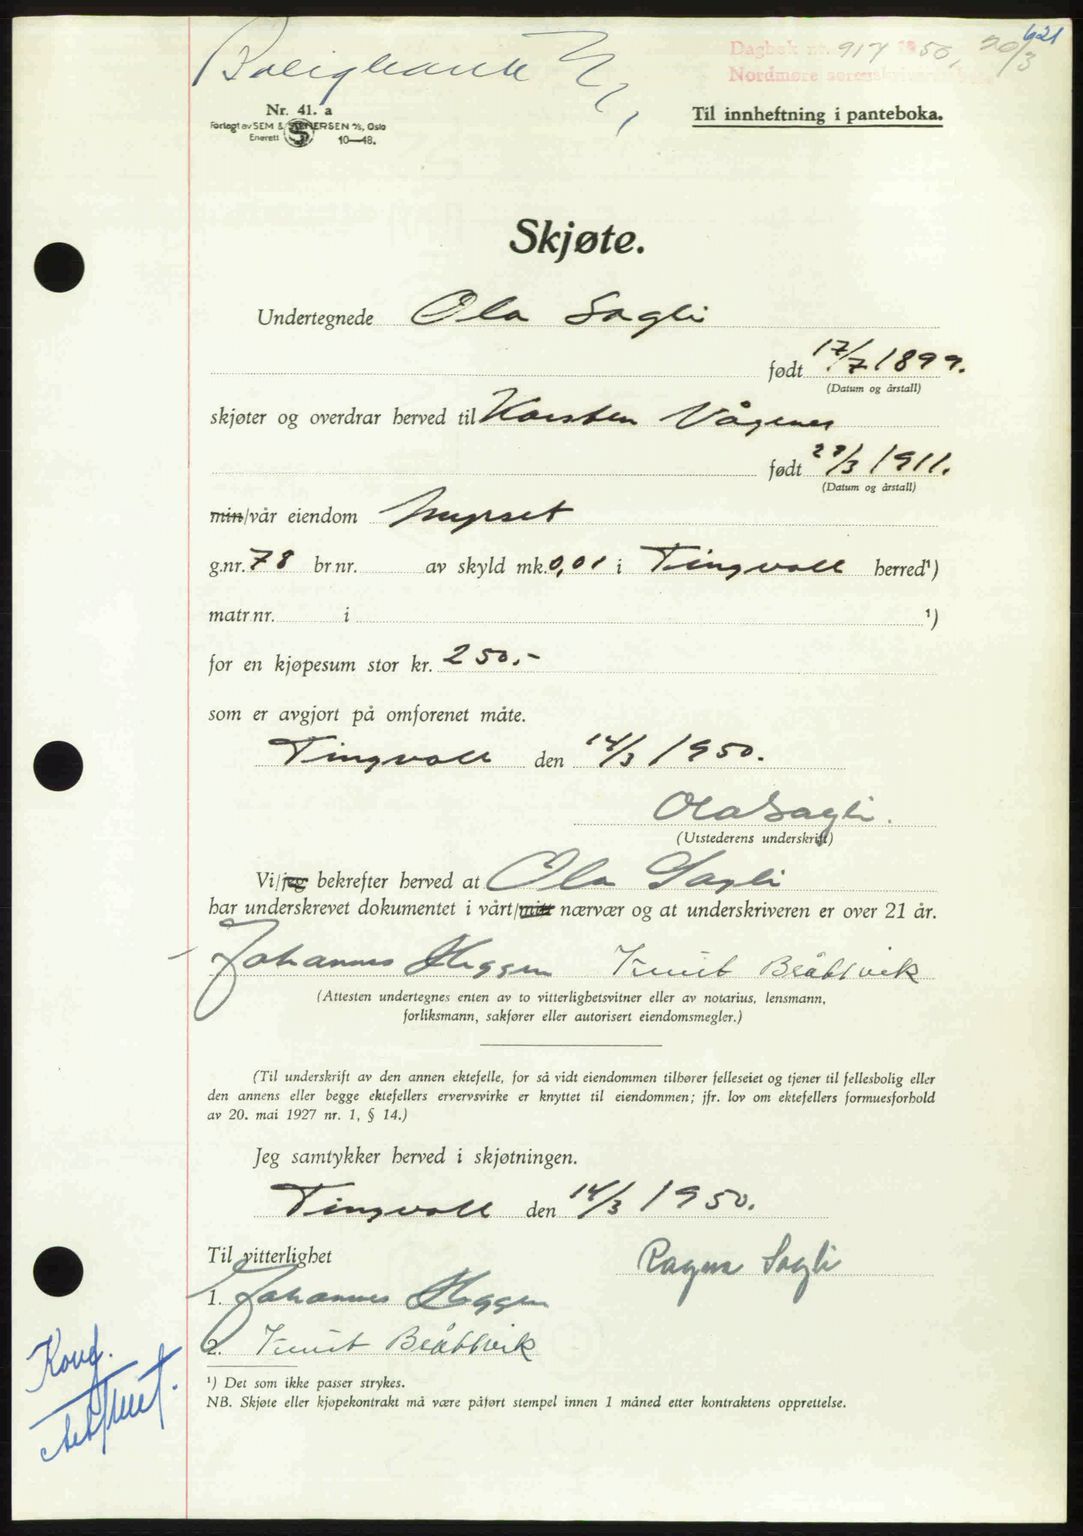 621
Dagbok nr. 917 1950, 20/3
Nordmøre sorenskriver
Nr. 41. a
Forlagt av SEM & STENERSEN A/S, Oslo
Enerett 10—48.
Til innheftning i panteboka.
Skjøte.
Undertegnede Ola Sagli
født 17/7 1899.
(Datum og årstall)
skjøter og overdrar herved til Karsten Vågenes
født 29/3 1911.
(Datum og årstall)
min/vår eiendom Myrset
g.nr. 78 br.nr. av skyld mk. 0,01 i Tingvoll herred¹)
matr.nr. i ¹)
for en kjøpesum stor kr. 250.-
som er avgjort på omforenet måte.
Tingvoll den 14/3 1950.
Ola Sagli.
(Utstederens underskrift)
Vi/jeg bekrefter herved at Ola Sagli
har underskrevet dokumentet i vårt/mitt nærvær og at underskriveren er over 21 år.
Johannes Heggem Knut Bråttvik
(Attesten undertegnes enten av to vitterlighetsvitner eller av notarius, lensmann,
forliksmann, sakfører eller autorisert eiendomsmegler.)
(Til underskrift av den annen ektefelle, for så vidt eiendommen tilhører felleseiet og tjener til fellesbolig eller
den annens eller begge ektefellers ervervsvirke er knyttet til eiendommen; jfr. lov om ektefellers formuesforhold
av 20. mai 1927 nr. 1, § 14.)
Jeg samtykker herved i skjøtningen.
Tingvoll den 14/3 1950.
Til vitterlighet
Ragna Sagli
1. Johannes Heggem
2. Knut Bråttvik
¹) Det som ikke passer strykes.
NB. Skjøte eller kjøpekontrakt må være påført stempel innen 1 måned etter kontraktens opprettelse.